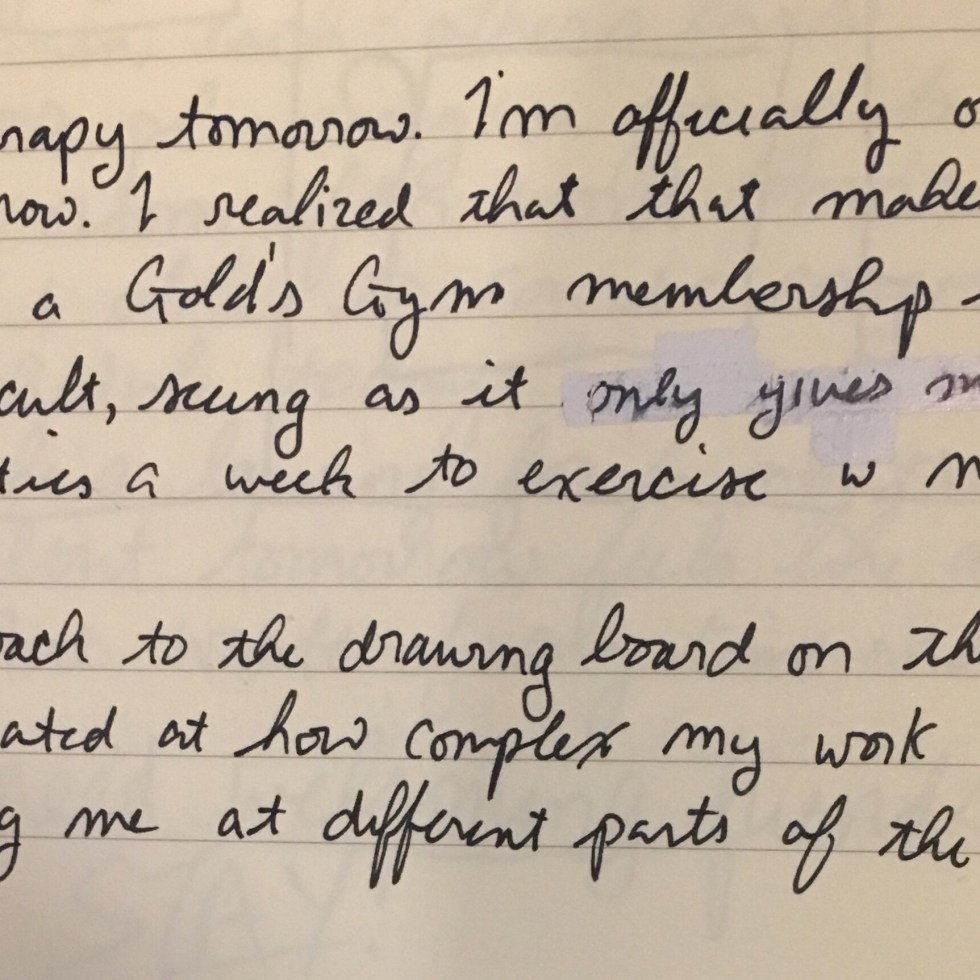 rapy tomorrow. I'm officially o
now. I realized that that made
a Gold's Gym membership -
cult, seeing as it only gives m
ties a week to exercise w m
back to the drawing board on th
ated at how complex my work
g me at different parts of the